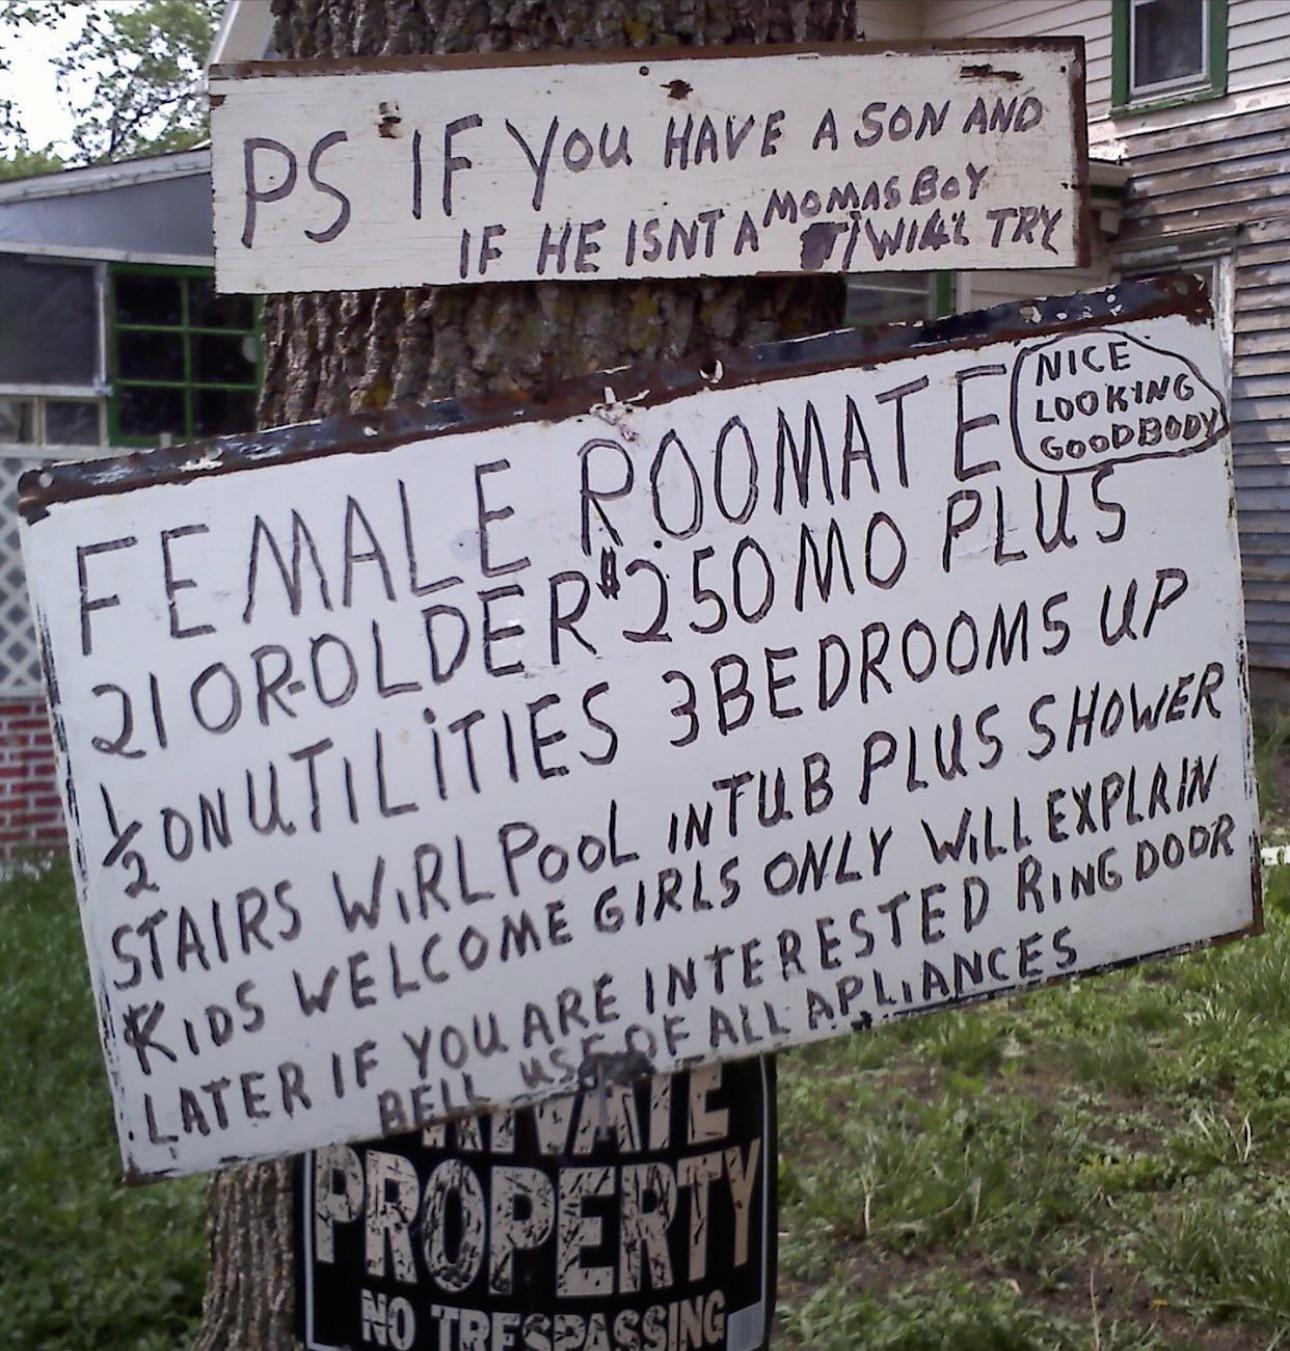 PS IF YOU HAVE A SON AND
IF HE ISNT A MOMAS BOY
I WILL TRY
FEMALE ROOMATE
NICE
LOOKING
GOODBODY
21 OR-OLDER $250 MO PLUS
1/2 ON UTILITIES 3 BEDROOMS UP
STAIRS WIRLPOOL IN TUB PLUS SHOWER
KIDS WELCOME GIRLS ONLY WILL EXPLAIN
LATER IF YOU ARE INTERESTED RING DOOR
BELL USE OF ALL APLIANCES
PRIVATE
PROPERTY
NO TRESPASSING